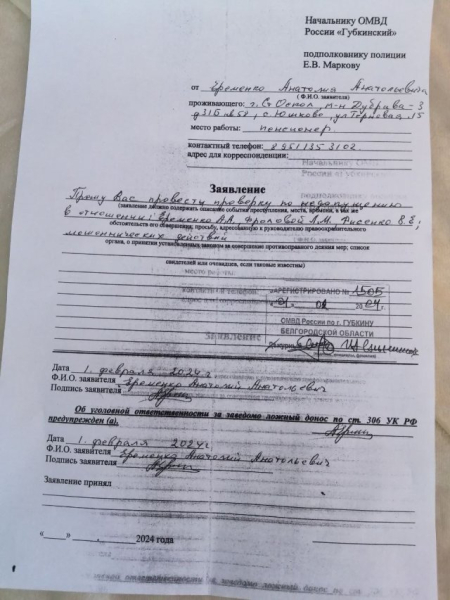 Начальнику ОМВД
России «Губкинский»
подполковнику полиции
Е.В. Маркову
от Еременко Анатолия Анатольевича
( Ф.И.О. заявителя)
проживающего: г. Ст. Оскол, м-н Дубрава-3
с. Юшково, ул. 15
место работы: пенсионер
контактный телефон: 8 951 135 3102
адрес для корреспонденции:
Заявление
Прошу Вас провести проверку по недопущению
(заявление должно содержать описание события преступления, места, времени, а так же
в отношении: Еременко А.А. Фроловой А.М.
обстоятельств его совершения; просьбу, адресованную к руководителю правоохранительного
мошеннических действий
органа, о принятии установленных законом за совершение противоправного деяния мер; список
свидетелей или очевидцев, если таковые известны)
ЗАРЕГИСТРИРОВАНО № 1505
ОМВД России по г. ГУБКИНУ
БЕЛГОРОДСКОЙ ОБЛАСТИ
Дата 1 февраля 2024 г
Ф.И.О. заявителя Еременко Анатолий Анатольевич
Подпись заявителя
Об уголовной ответственности за заведомо ложный донос по ст. 306 УК РФ
предупрежден (а).
Дата 1 февраля 2024 г.
Ф.И.О. заявителя Еременко Анатолий Анатольевич
Подпись заявителя
Заявление принял
«____» ________ 2024 года